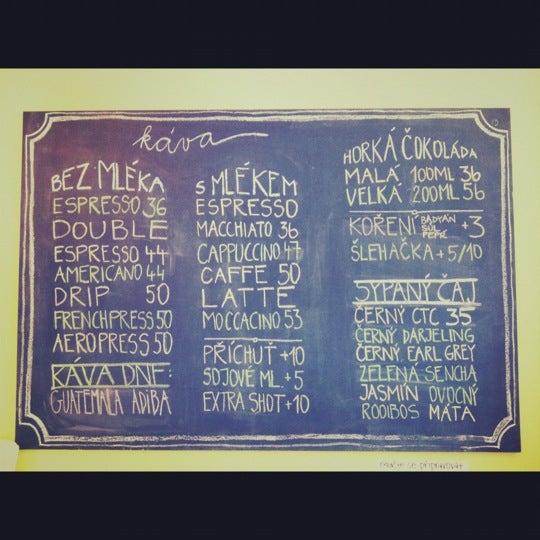 káva
BEZ MLÉKA
ESPRESSO 36
DOUBLE
ESPRESSO 44
AMERICANO 44
DRIP 50
FRENCHPRESS 50
AEROPRESS 50
KÁVA DNE:
GUATEMALA ADIBA
S MLÉKEM
ESPRESSO
MACCHIATO 36
CAPPUCCINO 47
CAFFE 50
LATTE
MOCCACINO 53
PŘÍCHUŤ +10
SOJOVÉ ML. +5
EXTRA SHOT +10
HORKÁ ČOKOLÁDA
MALÁ 100ML 36
VELKÁ 200ML 56
KOŘENÍ BADYÁN SŮL PEPŘ +3
ŠLEHAČKA +5/10
SYPANÝ ČAJ
ČERNÝ CTC 35
ČERNÝ DARJELING
ČERNÝ EARL GREY
ZELENÁ SENCHA
JASMÍN OVOCNÝ
ROOIBOS MÁTA
se připravovat